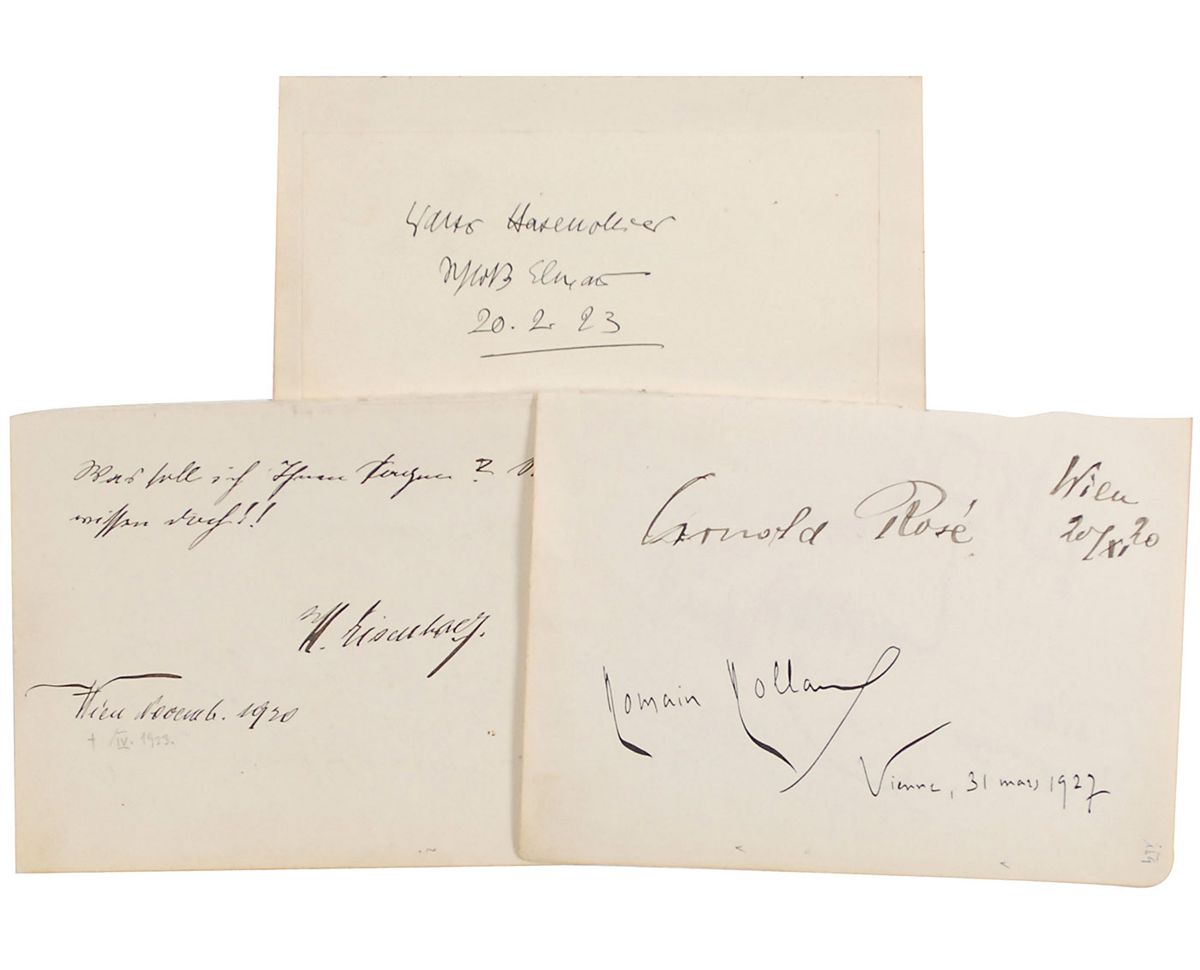 Walter Hasenclever
Schloß Elmau
20. 2. 23
Was soll ich Ihnen sagen?
wissen doch!!
H. Eisenbach.
Wien Decemb. 1920
† IV. 1923.
Arnold Rosé
Wien
20/XI 20
Romain Rolland
Vienne, 31 mars 1927